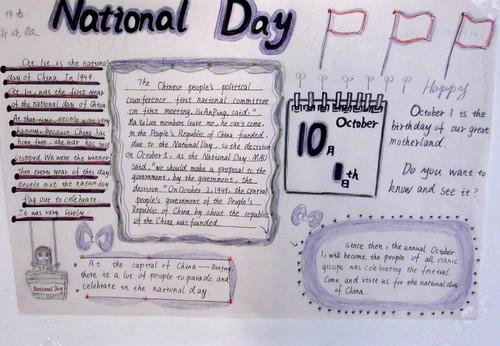 National Day
作者
Oct. 1st is the national
day of China. In 1949.
Oct. 1st was the first year
of the national day of China.
At that time, people were very
because China has
been free. the war has
stopped. We were the winner.
Then every year of this day
people put the national
flag out to celebrate.
It was very lively.
National Day
The Chinese people's political
conference first national committee
on first meeting. said,"
members leave me, he can't come,
in the People's Republic of China founded
due to the National Day, so the decision
on October 1, as the National Day. MAO
said, "we should make a proposal to the
government, by the government, the
decision." On October 2, 1949, the central
people's government of the People's
Republic of China by about the republic
of the China was founded.
At the capital of China — Beijing,
there is a lot of people to parade and
celebrate in the national day.
October
10月
1日
th
Happy
October 1 is the
birthday of our great
motherland.
Do you want to
know and see it?
Since then, the annual October
1, will become the people of all ethnic
groups was celebrating the festival.
Come and visit us for the national day
of China.